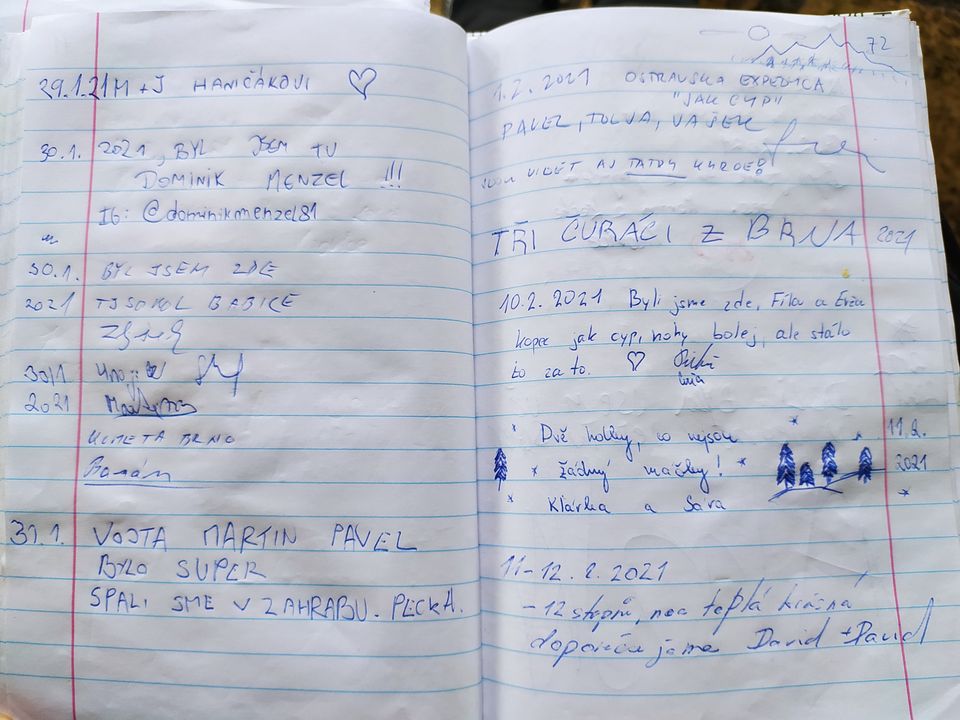 29.1.21 M + J HANIČÁKOVI
30.1. 2021, BYL JSEM TU
DOMINIK MENZEL !!!
IG: @dominikmenzel81
30.1. BYL JSEM ZDE
2021 TJ SOKOL BABICE
30/1
2021
KOMETA BRNO
Roman
31.1. VOJTA MARTIN PAVEL
BYLO SUPER
SPALI SME V ZAHRABU. PECKA.
72
1.2. 2021 OSTRAVSKA EXPEDICA
"JAK CYP"
PAVEL, TOLJA, VAŠEK
VIDĚT AJ TATRY KURDE!
TŘI ČURÁCI Z BRNA 2021
10.2. 2021 Byli jsme zde, Fíla a Evža
kopec jak cyp, nohy bolej, ale stálo
to za to.
Dvě holky, co nejsou 11.2.
žádný mačky! 2021
Klárka a Sára
11-12.2.2021
-12 stupňů, noc teplá krásná
doporučujeme David + David